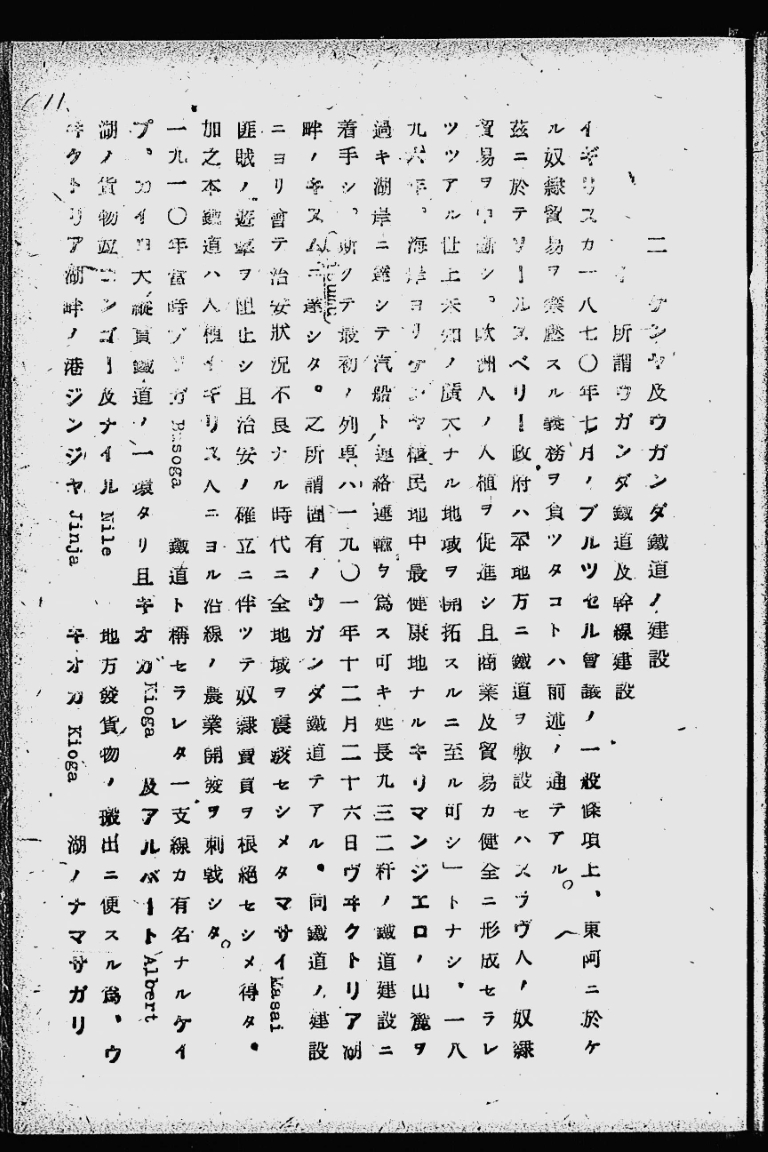 11.
二 ケンヤ及ウガンダ鐵道ノ建設
イ 所謂ウガンダ鐵道及幹線建設
イギリスカ一八七〇年七月ノブルツセル會議ノ一般條項上、東阿ニ於ケ
ル奴隸貿易ヲ禁壓スル義務ヲ負ツタコトハ前述ノ通テアル。
茲ニ於テソールスベリー政府ハ「本地方ニ鐵道ヲ敷設セハスラヴ人ノ奴隸
貿易ヲ中斷シ。欧洲人ノ人植ヲ促進シ且商業及貿易カ健全ニ形成セラレ
ツツアル世上未知ノ廣大ナル地域ヲ開拓スルニ至ル可シ」トナシ。一八
九六年。海岸ヨリケンヤ植民地中最健康地ナルキリマンジエロノ山麓ヲ
過キ湖岸ニ達シテ汽船ト連絡運輸ヲ爲ス可キ延長九三二粁ノ鐵道建設ニ
着手シ、斯クテ最初ノ列車ハ一九〇一年十二月二十六日ヴヰクトリア湖
畔ノキスムニ達シタ。之所謂固有ノウガンダ鐵道テアル。同鐵道ノ建設
ニヨリ曾テ治安狀況不良ナル時代ニ全地域ヲ震駭セシメタマサイ Masai
匪賊ノ遊擊ヲ阻止シ且治安ノ確立ニ伴ツテ奴隸賣買ヲ根絶セシメ得タ。
加之本鐵道ハ入植イギリス人ニヨル沿線ノ農業開發ヲ刺戟シタ。
一九一〇年當時ブソガ Busoga 鐵道ト稱セラレタ一支線カ有名ナルケイ
プ、カイロ大縱貫鐵道ノ一環タリ且キオガ Kioga 及アルバート Albert
湖ノ貨物竝コンゴー及ナイル Nile 地方發貨物ノ搬出ニ便スル爲、ウ
ヰクトリア湖畔ノ港ジンジヤ Jinja キオガ Kioga 湖ノナマサガリ